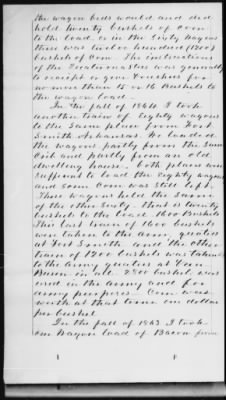 the wagon beds would and did
hold twenty bushels of Corn
to the load. so in the Sixty wagons
there was twelve hundred (1200)
bushels of Corn. The instructions
of the Quartermaster was generally
to receipt or give Vouchers for
no more than 15 or 16 Bushels to
the wagon load.
In the fall of 1864 I took
another train of Eighty wagons
to the same place from Fort
Smith Arkansas. We loaded
the wagons partly from the same
Crib and partly from an old
dwelling house, both places was
sufficient to load the Eighty wagons
and some Corn was still left.
These wagons held the same
as the other Sixty that is twenty
bushels to the load 1600 Bushels
This last train of 1600 bushels
were taken to the army quarters
at Fort Smith and the other
train of 1200 bushels was taken
to the army quarters at
in all. 2800 bushels were
used in the army and for
army purposes. Corn was
worth at that time one dollar
per bushel.
In the fall of 1863 I took
one wagon load of Bacon from